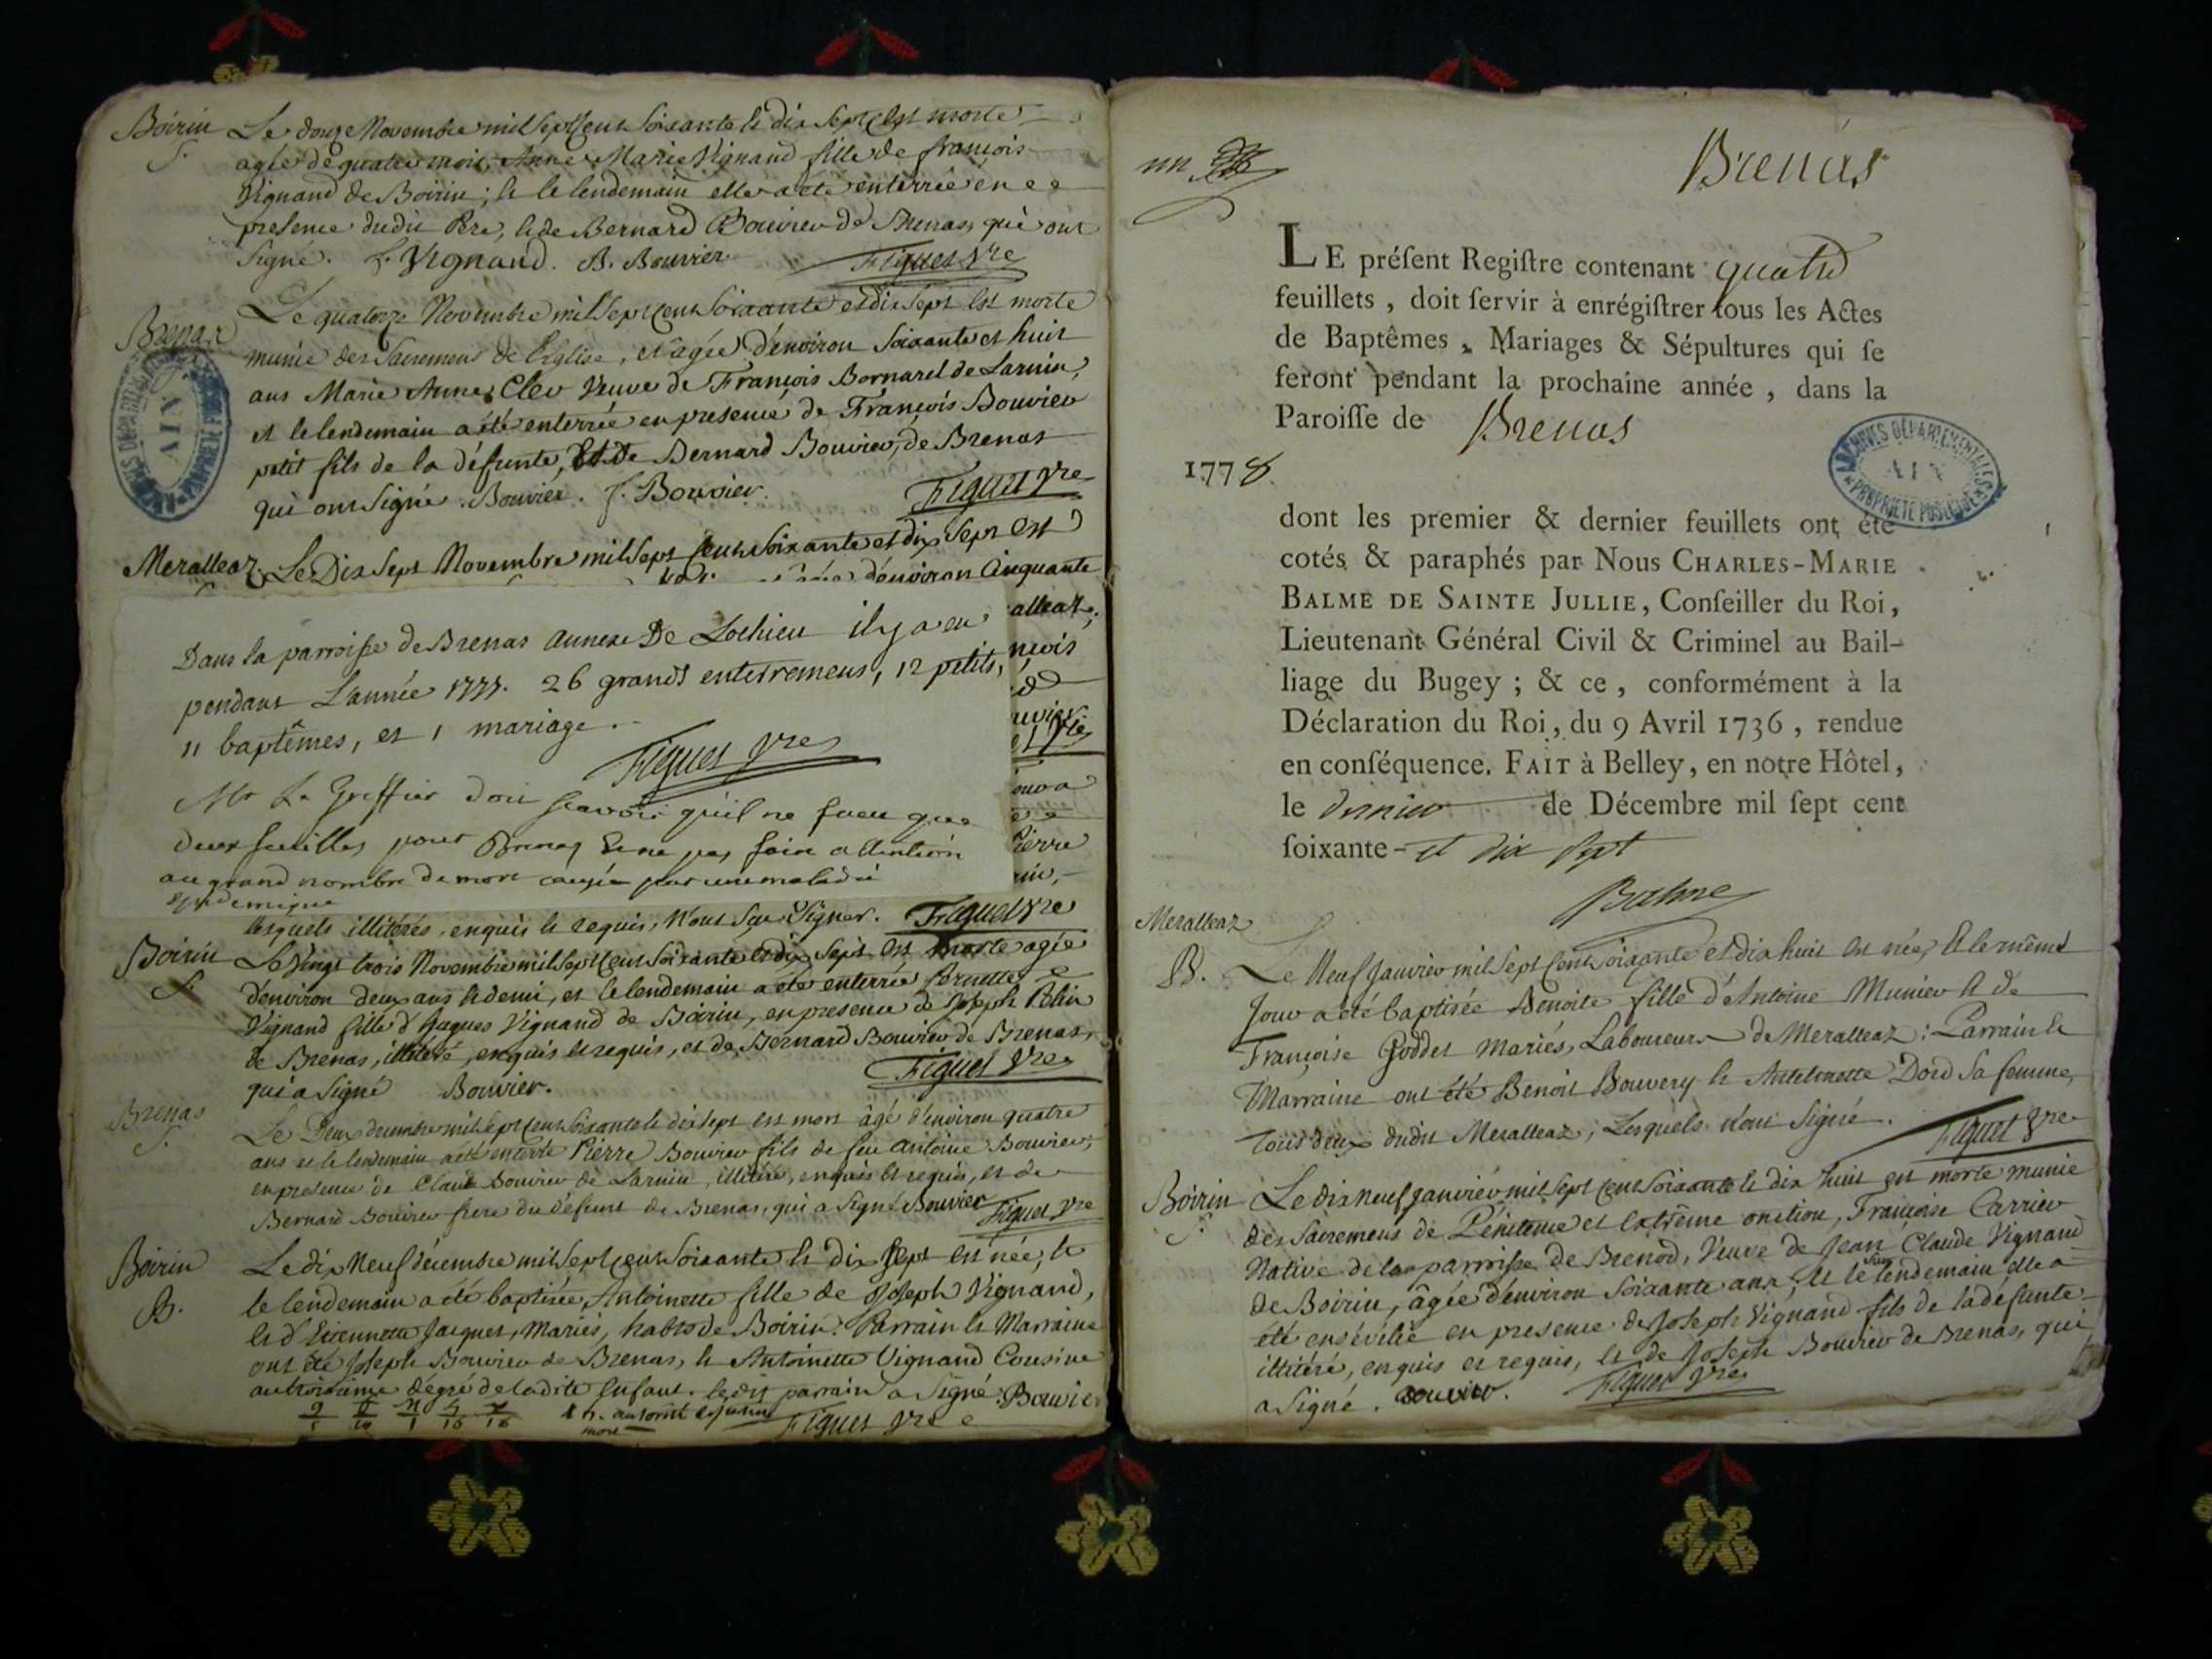 Boirin
S.
Le douze Novembre mil Sept Cent Soixante & dix Sept Est morte
agée de quatre mois, Anne Marie Vignand fille de françois
Vignand de Boirin; & le lendemain elle a été enterrée en
presence dudit Pere, & de Bernard Bouvier de Brenas, qui ont
Signé. f. Vignand. B. Bouvier. Figuet Vre
Brenas
Le quatorze Novembre mil Sept Cent Soixante et dix Sept Est morte
munie des Sacremens de l'Eglise, et agée d'environ Soixante et huit
ans Marie Anne Cler Veuve de François Bornarel de Larnin,
et le lendemain a été enterrée en presence de François Bouvier
petit fils de la défunte, Et de Bernard Bouvier, de Brenas
qui ont Signé. Bouvier. f. Bouvier. Figuet Vre
Meralleaz. Le Dix Sept Novembre mil Sept Cent Soixante et dix Sept Est
d'environ Cinquante
alleaz;
Dans la parroisse de Brenas annexe De Lochieu il y a eu
pendant L'année 1777. 26 grands enterremens, 12 petits,
11 baptêmes, et 1 mariage.
Figuet Vre
Mr Le Greffier doit scavoir qu'il ne faut que
deux feuilles pour Brenas & ne pas faire attention
au grand nombre de mort causée par une maladie
epidemique
lesquels illitérés, enquis & requis, N'ont Sçu Signer. Figuet Vre
Boirin
S.
Le Vingt trois Novembre mil Sept Cent Soixante et dix Sept Est morte agée
d'environ deux ans & demi, et le lendemain a été enterrée Pernette
Vignand fille d'Jaques Vignand de Boirin, en presence de Joseph
de Brenas, illitéré, enquis et requis, et de Bernard Bouvier de Brenas,
qui a Signé Bouvier. Figuet Vre
Brenas
S.
Le Deux decembre mil Sept Cent Soixante & dix Sept est mort âgé d'environ quatre
ans et le lendemain a été enterré Pierre Bouvier fils de feu Antoine Bouvier,
en presence de Claude Bouvier de Larnin, illitéré, enquis et requis, et de
Bernard Bouvier frere du défunt de Brenas, qui a Signé Bouvier Figuet Vre
Boirin
B.
Le dix Neuf décembre mil Sept Cent Soixante & dix Sept est née, &
le lendemain a été baptisée, Antoinette fille de Joseph Vignand,
& d'Etiennette Jacquet, Mariés, de Boirin: Parrain & Marraine
ont été Joseph Bouvier de Brenas, & Antoinette Vignand Cousine
au troisieme dégré de ladite Enfant. ledit parrain a Signé Bouvier
Figuet Vre
un
Brenas
LE préſent Regiſtre contenant quatre
feuillets, doit ſervir à enrégiſtrer tous les Actes
de Baptêmes, Mariages & Sépultures qui ſe
feront pendant la prochaine année, dans la
Paroiſſe de Brenas
1778.
ARCHIVES DÉPARTEMENTALES
AIN
PROPRIÉTÉ PUBLIQUE
dont les premier & dernier feuillets ont été
cotés & paraphés par Nous CHARLES-MARIE
BALME DE SAINTE JULLIE, Conſeiller du Roi,
Lieutenant Général Civil & Criminel au Bail-
liage du Bugey; & ce, conformément à la
Déclaration du Roi, du 9 Avril 1736, rendue
en conſéquence. FAIT à Belley, en notre Hôtel,
le dernier de Décembre mil ſept cent
ſoixante-et dix sept
Balme
Meralleaz
B.
Le Neuf Janvier mil Sept Cent Soixante et dix huit est née, & le même
Jour a été baptisée Benoite fille d'Antoine Munier & de
Françoise Goddet mariés, Laboureurs de Meralleaz: Parrain &
Marraine ont été Benoit Bouvery & Anthelmette Dord Sa femme,
Tous deux dudit Meralleaz, Lesquels n'ont Signé. Figuet Vre
Boirin
S.
Le dix neuf Janvier mil Sept Cent Soixante & dix huit est morte munie
des Sacremens de Pénitence et Extrême onction, Françoise Carrier
Native de la parroisse de Brenod, Veuve de Jean Claude Vignand
de Boirin, âgée d'environ Soixante ans, et le Sur lendemain elle a
été ensévelie en presence de Joseph Vignand fils de la défunte
illitéré, enquis et requis, et de Joseph Bouvier de Brenas, qui
a Signé. Bouvier. Figuet Vre